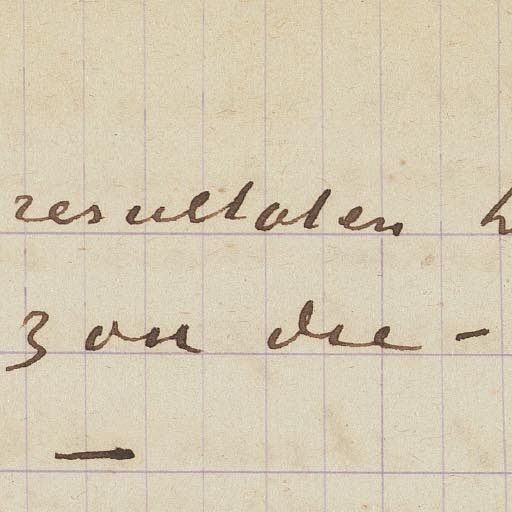 resultaten
zou die –
—